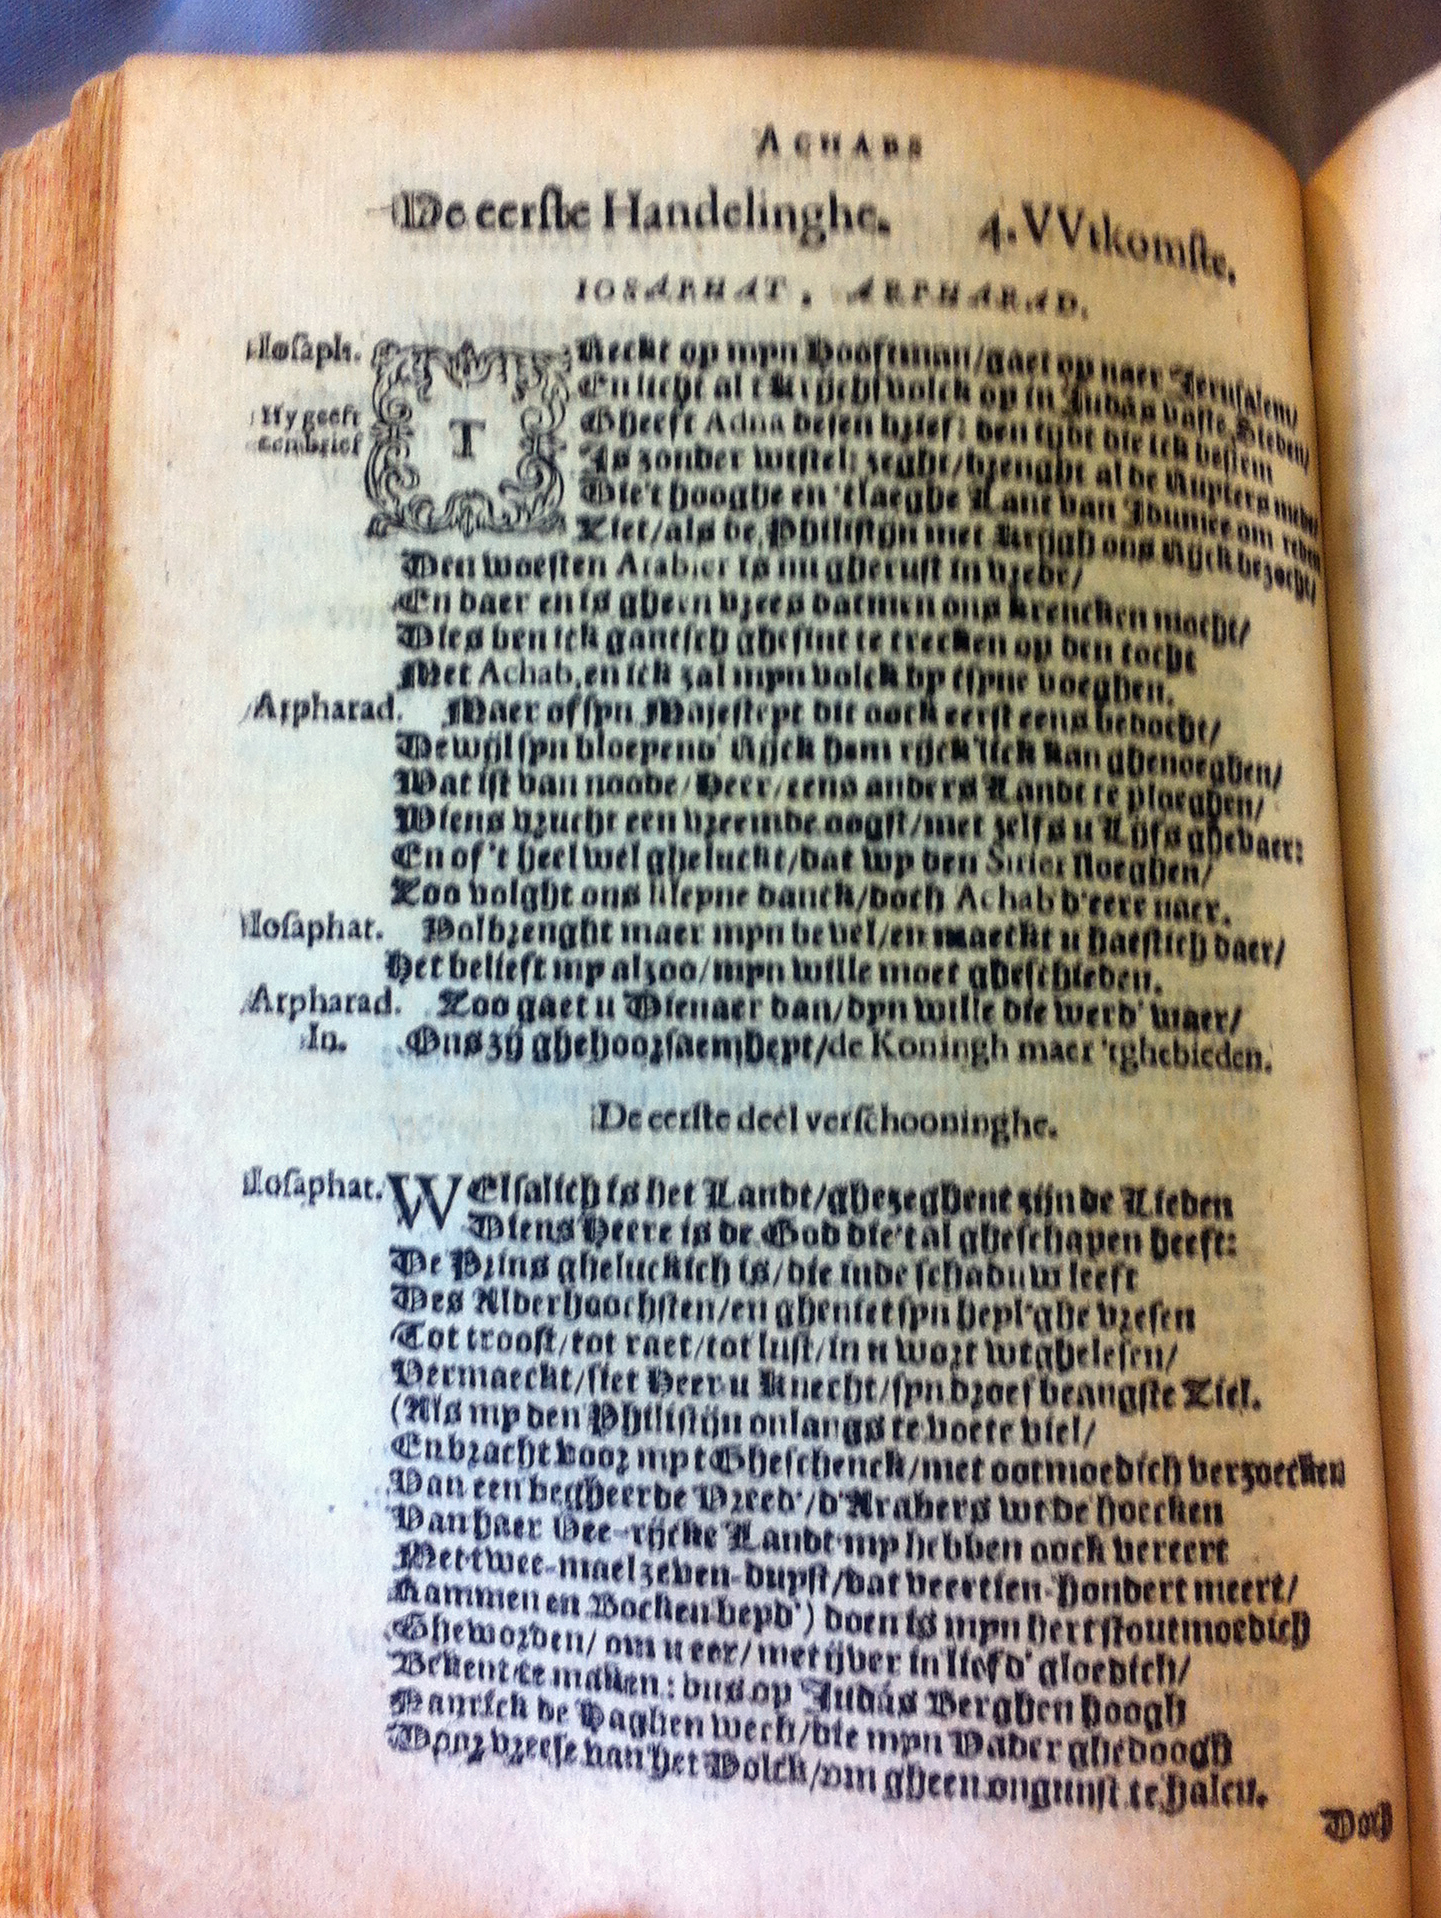 ACHABS
De eerste Handelinghe. 4. VVtkomste.
IOSAPHAT, ARPHARAD.
Iosaph. TReckt op myn Hooftman/gaet op naer Jerusalem/
En licht al 't Krijchsvolck op in Judás vaste Steden/
Hy geeft Gheeft Adna desen brief: den tijdt die ick bestem
eenbrief Is zonder wissel: zeght/brenght al de Ruyters mede
Die 't hooghe en 't laeghe Lant van Idumee om reden
Ziet/als de Philistijn met Krijgh ons Rijck bezocht/
Den woesten Arabier is nu gherust in vrede/
En daer en is gheen vrees datmen ons krencken mocht/
Dies ben ick gantsch ghesint te trecken op den tocht
Met Achab, en ick zal mijn volck by tsyne voeghen.
Arpharad. Maer of syn Majesteyt dit oock eerst eens bedocht/
Dewijl syn bloeyend' Rijck hem rijck'lick kan ghenoeghen/
Wat ist van noode/Heer/eens anders Landt te ploeghen/
Wiens vrucht een vreemde oogst/met zelfs u Lijfs ghevaer:
En of 't heel wel gheluckt/dat wy den Sirier sloeghen/
Zoo volght ons kleyne danck/doch Achab d'eere naer.
Iosaphat. Volbrenght maer myn bevel/en maeckt u haestich daer/
Het belieft my alzoo/myn wille moet gheschieden.
Arpharad. Zoo gaet u Dienaer dan/dyn wille die werd' waer/
In. Ons zij ghehoorsaemheyt/de Koningh maer 'tghebieden.
De eerste deel verschooninghe.
Iosaphat. WElsalich is het Landt/ghezeghent zijn de Lieden
Diens Heere is de God die't al gheschapen heeft:
De Prins gheluckich is/die inde schaduw leeft
Des Alderhoochsten/en ghenietsyn heyl'ghe vresen
Tot troost/tot raet/tot lust/in u wort wtghelesen/
Vermaeckt/siet Heer u Knecht/syn droef beangste Ziel.
(Als my den Philistijn onlangs te voete viel/
En bracht voor my t Gheschenck/met ootmoedich verzoecken
Van een begheerde Vreed'/d'Arabers wt de hoecken
Van haer Vee-rijcke Landt my hebben oock vereert
Met twee-mael zeven-duyst/dat veertien-hondert meert/
Rammen en Bocken beyd') doen is myn hert stoutmoedich
Gheworden/om u eer/met ijver in liefd' gloedich/
Bekent te maken: dus op Judás Berghen hoogh
Namick de Haghen wech/die myn Vader ghedoogh
Door vreese van het Volck/om gheen ongunst te halen.
Doch